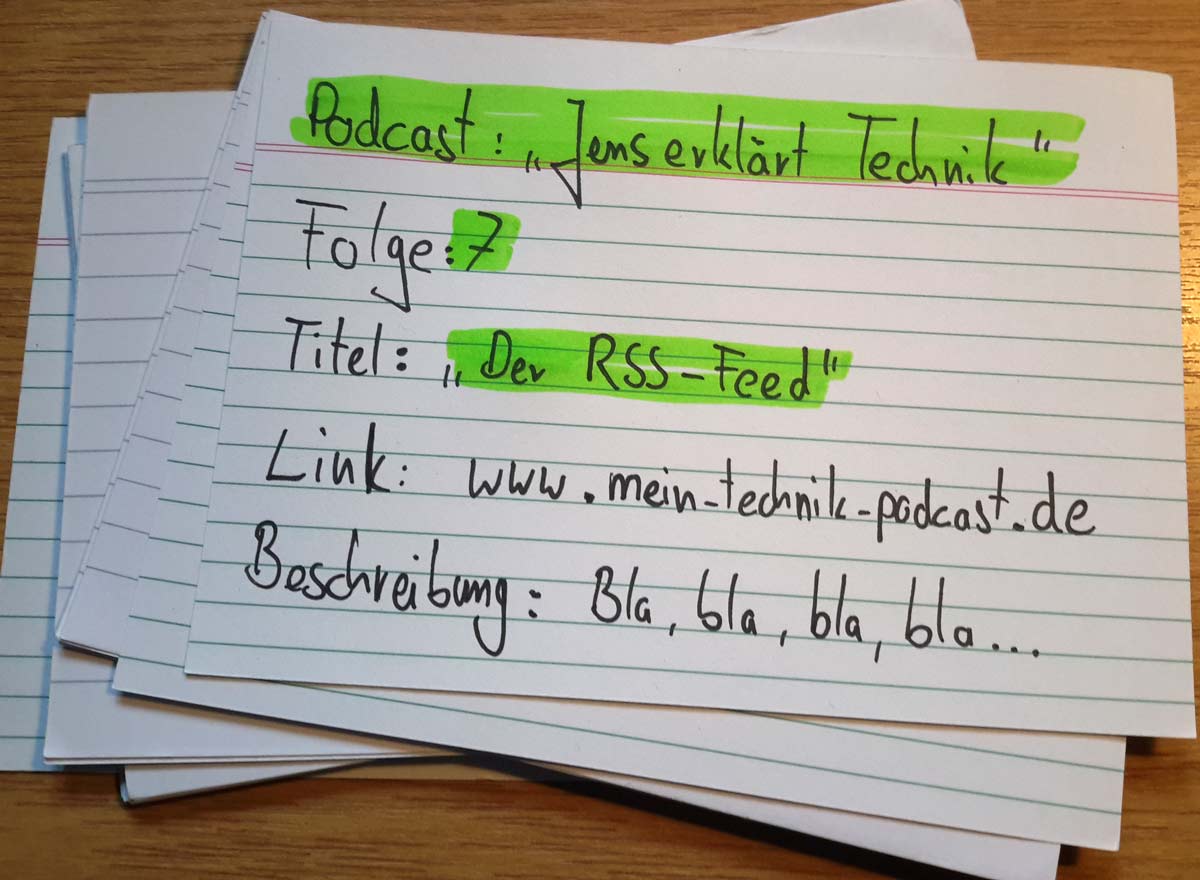 Podcast: „Jens erklärt Technik“
Folge: 7
Titel: „Der RSS-Feed“
Link: www.mein-technik-podcast.de
Beschreibung: Bla, bla, bla, bla...